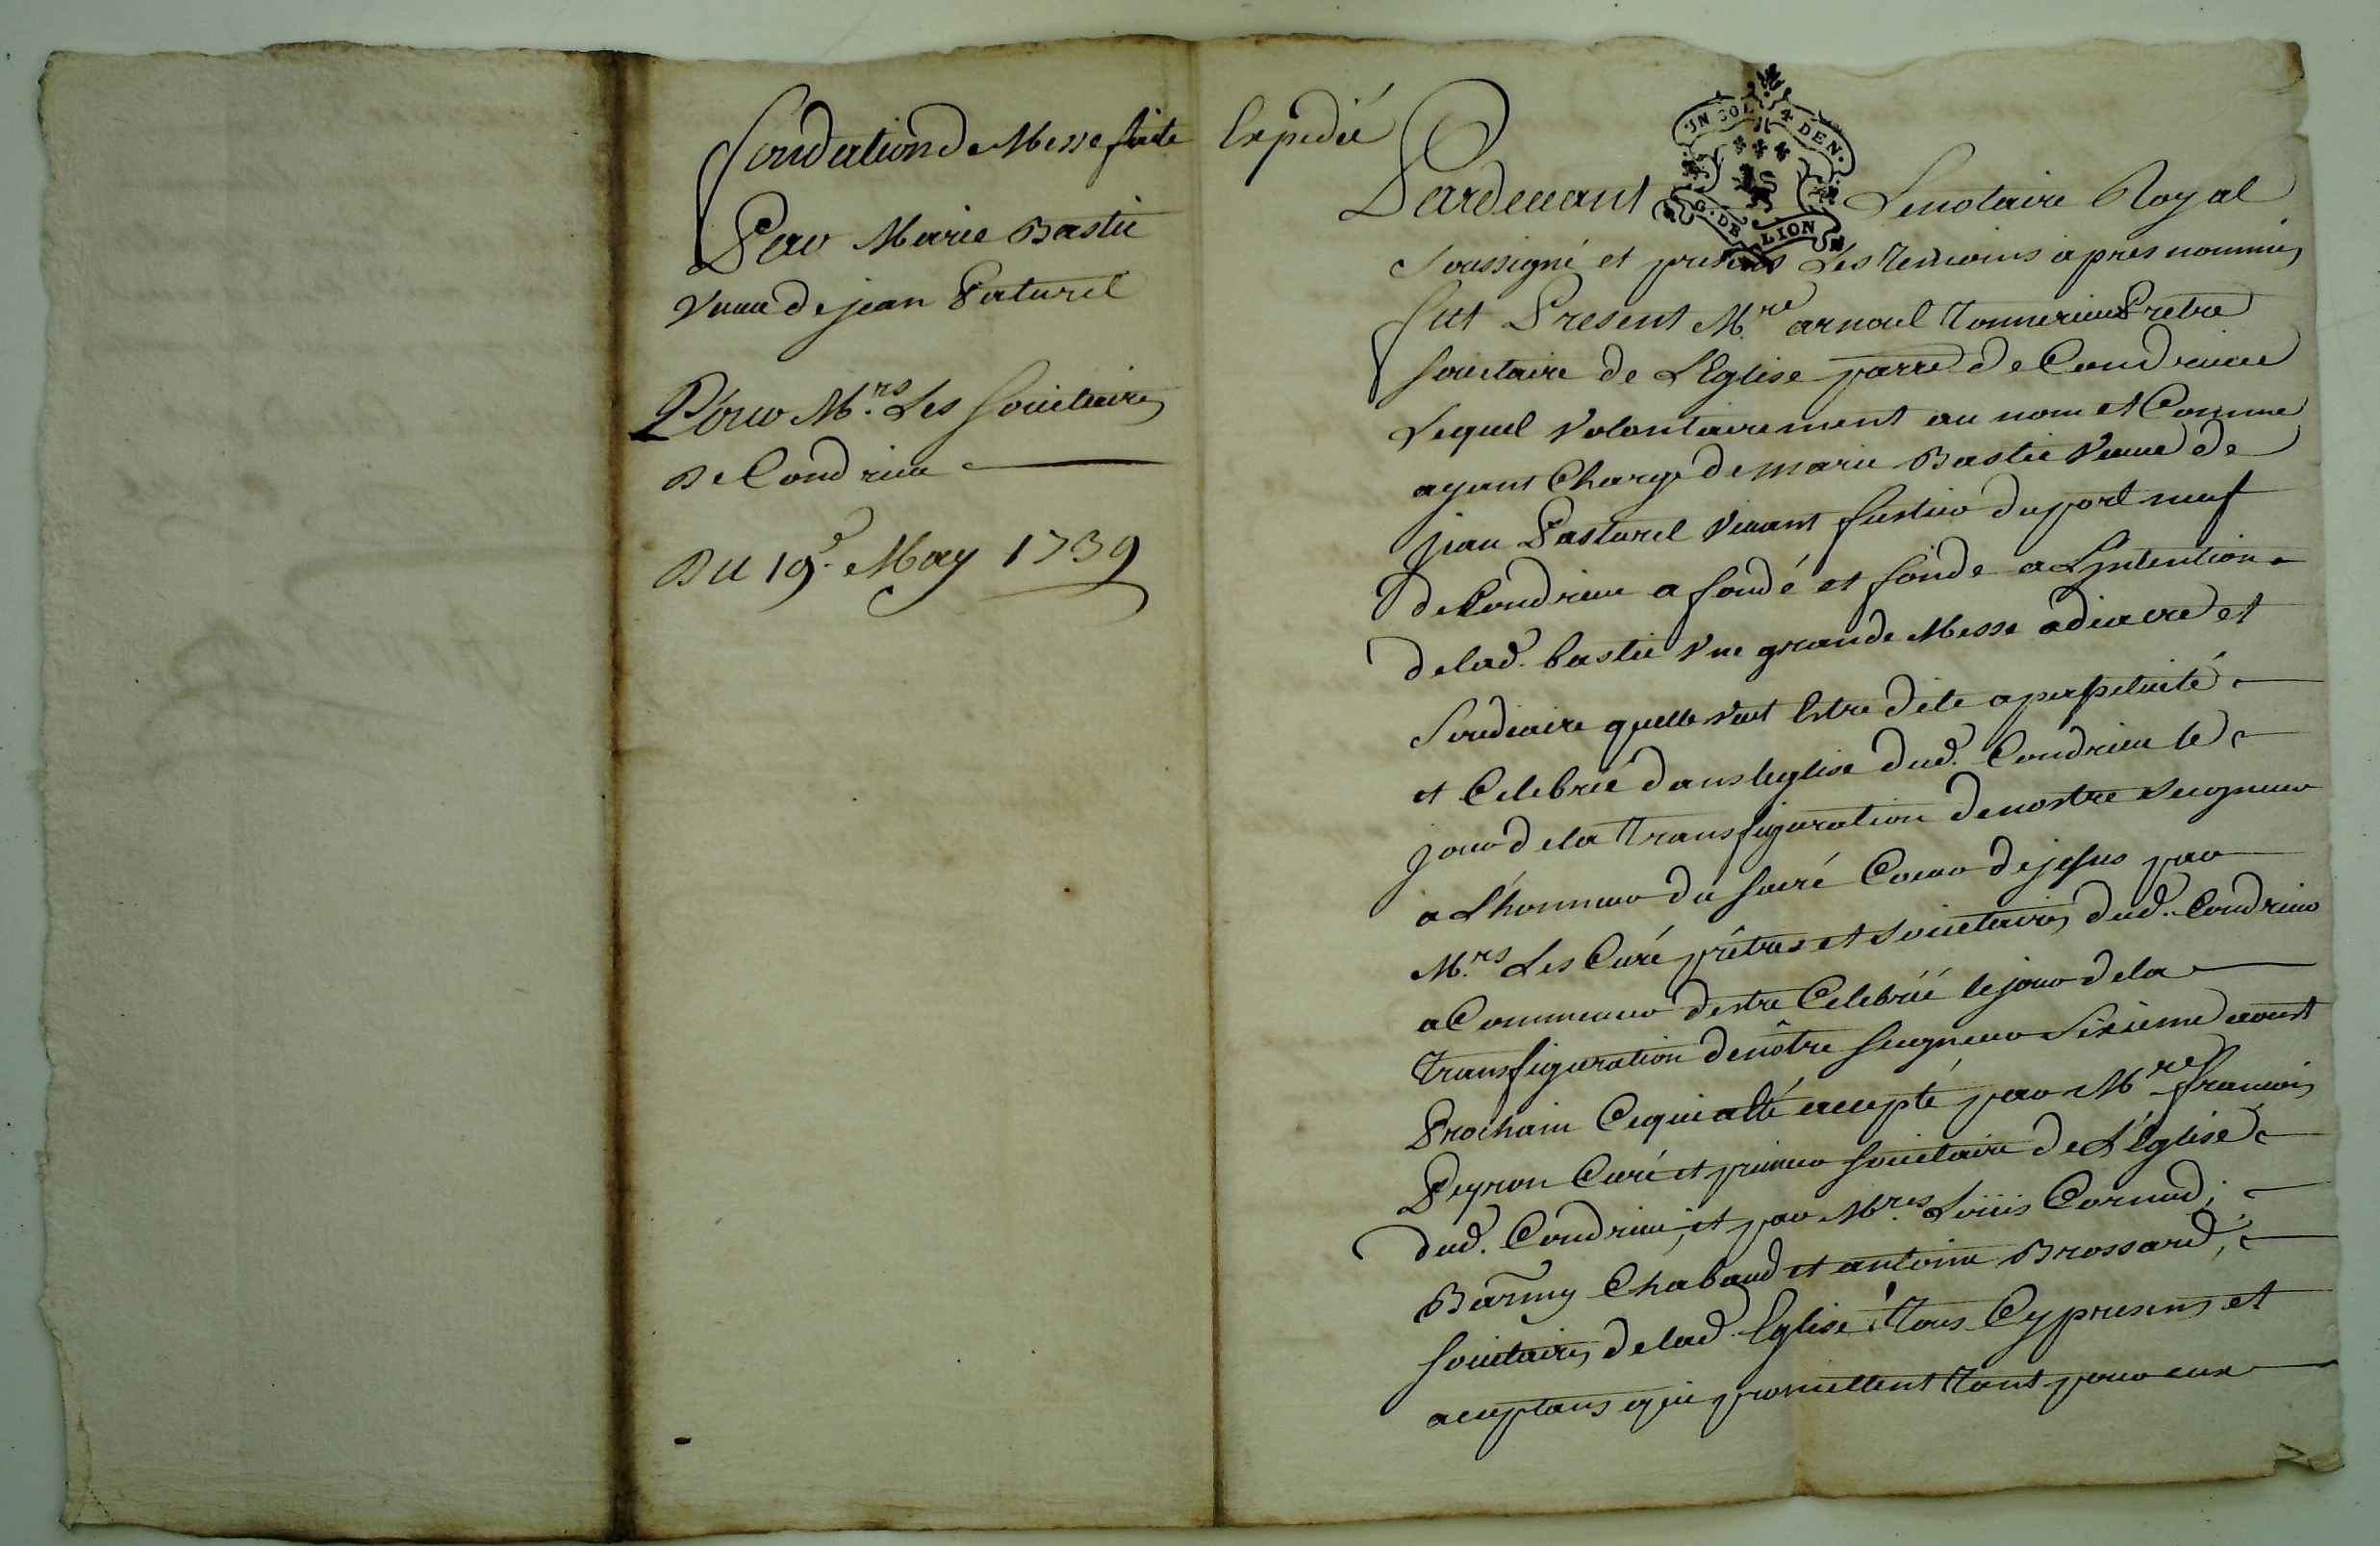 fondation de Messe faite
Par Marie Bastie
veuve de jean Paturel
Pour M.rs Les Societaires
De Condrieu
Du 19.e May 1739
Expedié
UN SOL 4 DEN.
G. DE LION
Pardevant Le notaire Royal
soussigné et presens Les temoins apres nommés
fut Present M.re arnoul Pretre
societaire de L'Eglise parre de Condrieu
Lequel volontairement au nom et Comme
ayant Charge de marie Bastie veuve de
jean Pasturel vivant du port neuf
de Condrieu a fondé et fonde a L'jntention
de lad. bastie vne grande Messe a diacre et
soudiacre quelle veut Estre dite a perpetuité
et Celebrée dans leglise dud. Condrieu le
jour de la transfiguration de nostre seigneur
a L'honneur du sacré Coeur de jesus par
M.rs Les Curé prêtres et societaires dud. Condrieu
a Commencer destre Celebréé le jour de la
transfiguration de nôtre seigneur sixieme aoust
Prochain Ce qui a été accepté par M.re francois
Peyron Curé et premier societaire de L'Eglise
dud. Condrieu, et par M.res Loüis Cornud,
Barmy Chabaud et antoine Brossard,
societaires de lad. Eglise tous Cy presens et
acceptans qui promettent tant pour eux